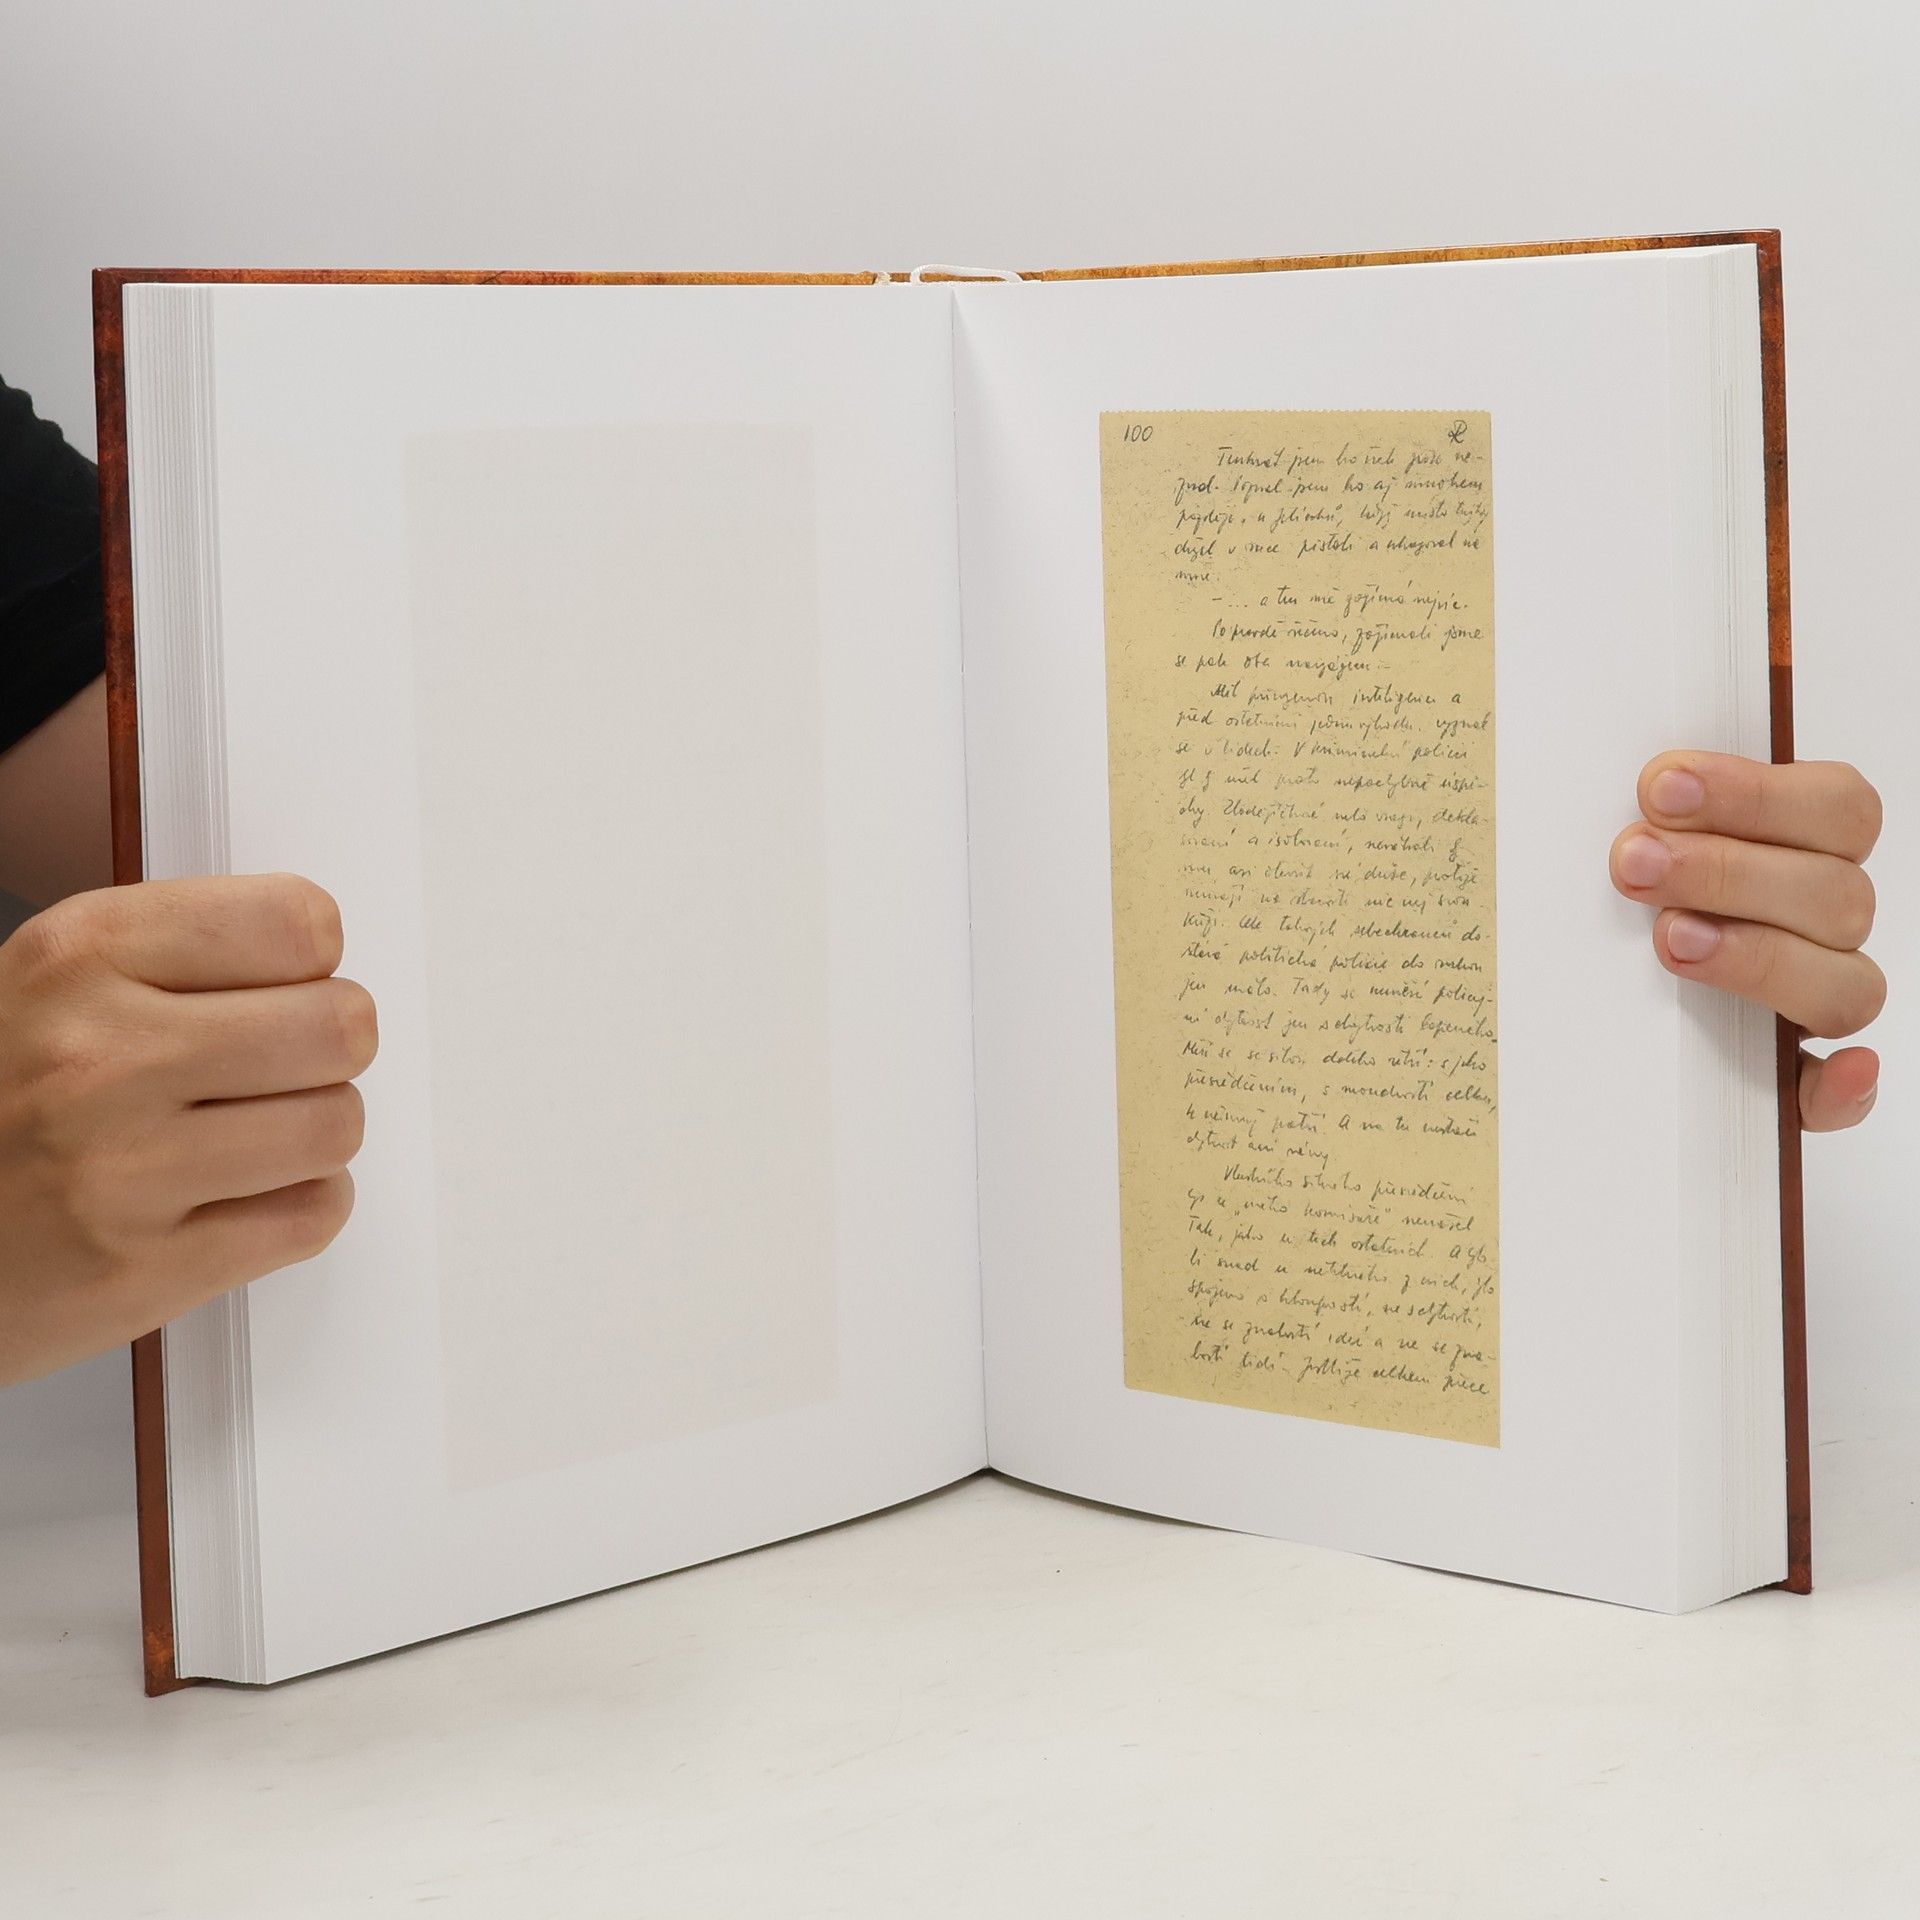 100 R
Tenkrát jsem ho však ještě ne-
znal. Poznal jsem ho až mnohem
později, u Jelínků, když místo knihy
držel v ruce pistoli a ukazoval na
mne:
– ... a ten mě zajímá nejvíc.
Po pravdě řečeno, zajímali jsme
se pak oba navzájem. –
Měl přirozenou inteligenci a
před ostatními jednu výhodu: vyznal
se v lidech. V kriminelní policii
by měl proto nepochybně úspě-
chy. Zlodějíčkové nebo vrazi, dekla-
sovaní a isolovaní, neváhali by
mu asi otevřít své duše, protože
nemají na starosti nic než svou
kůži. Ale takových sebechranců do-
stává politická policie do rukou
jen málo. Tady se neměří policej-
ní chytrost jen s chytrostí lapeného.
Měří se se silou daleko větší: s jeho
přesvědčením, s moudrostí celku,
k němuž patří. A na to nestačí
chytrost ani rány.
Vlastního silného přesvědčení
bys u „mého komisaře" nenašel
Tak, jako u těch ostatních. A bylo-
li snad u některého z nich, bylo
spojeno s hloupostí, ne s chytrostí,
ne se znalostí ideí a ne se zna-
lostí lidí. Jestliže celkem přece